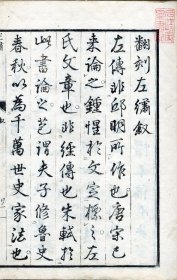 翻刻左繡叙
左傳非邱明所作也唐宋已
来論之鍾惺於文定標之左
氏文章也非經傳也朱軾於
此書論之謂夫子修魯史
春秋以為千萬世史家法也